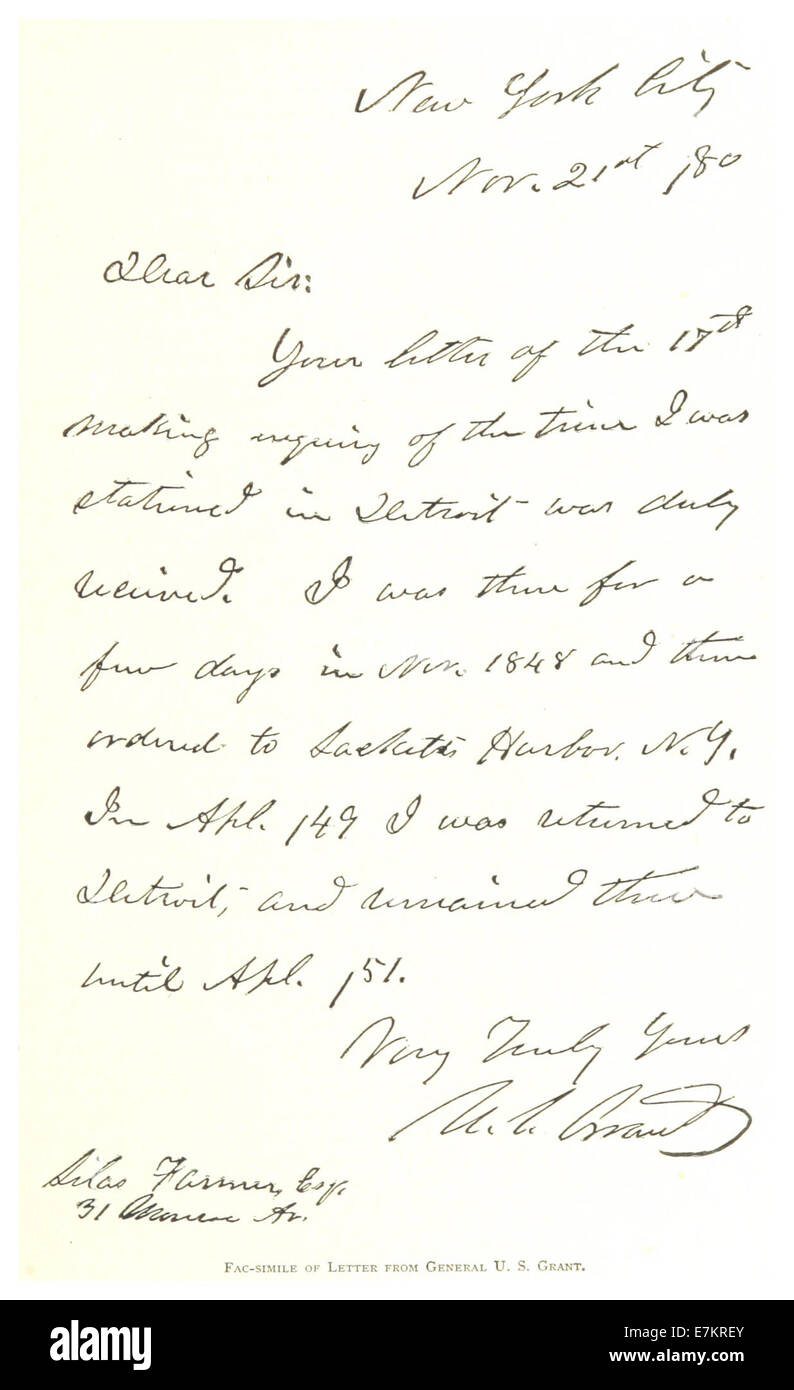 New York City
Nov. 21st /80
Dear Sir:
Your letter of the 17th
making inquiry of the time I was
stationed in Detroit was duly
received. I was there for a
few days in Nov. 1848 and then
ordered to Sackets Harbor. N.Y.
In Apl. /49 I was returned to
Detroit, and remained there
until Apl. /51.
Very Truly Yours
U. S. Grant
Silas Farmer, Esq.
31 Monroe Av.
FAC-SIMILE OF LETTER FROM GENERAL U. S. GRANT.
a
alamy stock photo
a alamy
E7KREY
www.alamy.com